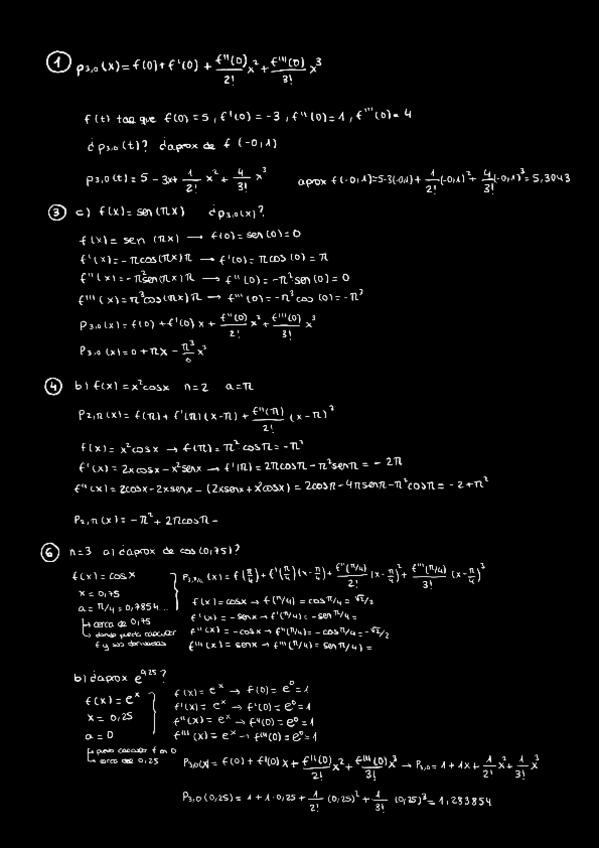 ① P₃,₀(x) = f(0) + f'(0) + f''(0)/2! x² + f'''(0)/3! x³
f(t) tal que f(0) = 5, f'(0) = -3, f''(0) = 1, f'''(0) = 4
¿P₃,₀(t)? ¿aprox de f(-0,1)
P₃,₀(t) = 5 - 3x + 1/2! x² + 4/3! x³ aprox f(-0,1) = 5-3(-0,1) + 1/2! (-0,1)² + 4/3! (-0,1)³ = 5,3043
③ c) f(x) = sen(πx) ¿P₃,₀(x)?
f(x) = sen (πx) → f(0) = sen(0) = 0
f'(x) = -πcos(πx)π → f'(0) = πcos(0) = π
f''(x) = -π²sen(πx)π → f''(0) = -π²sen(0) = 0
f'''(x) = π³cos(πx)π → f'''(0) = -π³cos(0) = -π³
P₃,₀(x) = f(0) + f'(0)x + f''(0)/2! x² + f'''(0)/3! x³
P₃,₀(x) = 0 + πx - π³/6 x³
④ b) f(x) = x²cosx n=2 a=π
P₂,π(x) = f(π) + f'(π)(x-π) + f''(π)/2! (x-π)²
f(x) = x²cosx → f(π) = π²cosπ = -π²
f'(x) = 2xcosx - x²senx → f'(π) = 2πcosπ - π²senπ = -2π
f''(x) = 2cosx - 2xsenx - (2xsenx + x²cosx) = 2cosπ - 4πsenπ - π²cosπ = -2+π²
P₂,π(x) = -π² + 2πcosπ -
⑥ n=3 a) ¿aprox de cos(0,75)?
f(x) = cosx
x = 0,75
a = π/4 = 0,7854...
↳ cerca de 0,75
↳ donde puedo calcular
f y sus derivadas
P₃,π/₄(x) = f(π/4) + f'(π/4)(x-π/4) + f''(π/4)/2! (x-π/4)² + f'''(π/4)/3! (x-π/4)³
f(x) = cosx → f(π/4) = cosπ/4 = √2/2
f'(x) = -senx → f'(π/4) = -senπ/4 =
f''(x) = -cosx → f''(π/4) = -cosπ/4 = -√2/2
f'''(x) = senx → f'''(π/4) = senπ/4) =
b) ¿aprox e^0,25?
f(x) = eˣ
x = 0,25
a = 0
↳ puedo calcular f en 0
↳ cerca de 0,25
f(x) = eˣ → f(0) = e⁰ = 1
f'(x) = eˣ → f'(0) = e⁰ = 1
f''(x) = eˣ → f''(0) = e⁰ = 1
f'''(x) = eˣ → f'''(0) = e⁰ = 1
P₃,₀(x) = f(0) + f'(0)x + f''(0)/2! x² + f'''(0)/3! x³ → P₃,₀ = 1 + 1x + 1/2! x² + 1/3! x³
P₃,₀(0,25) = 1 + 1·0,25 + 1/2! (0,25)² + 1/3! (0,25)³ = 1,283854